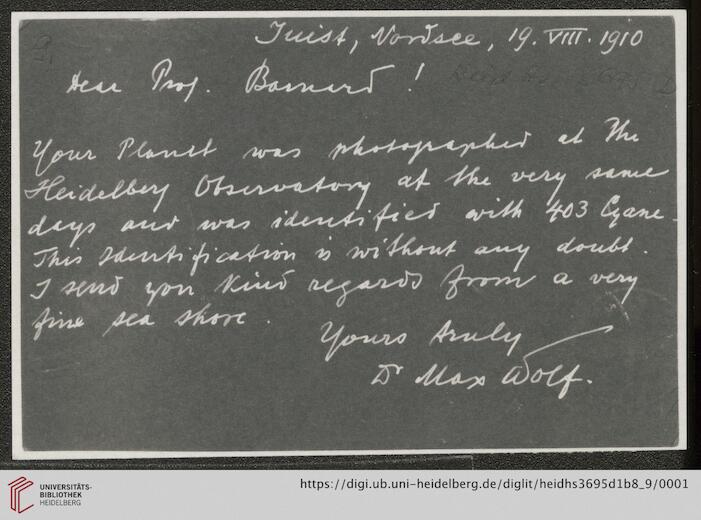 Juist, Nordsee, 19. VIII. 1910
Dear Prof. Barnard!
Your Planet was photographed at the
Heidelberg Observatory at the very same
days and was identified with 403 Cyane.
This Identification is without any doubt.
I send you Kind regards from a very
fine sea shore.
Yours truly
Dr Max Wolf.
UNIVERSITÄTS-
BIBLIOTHEK
HEIDELBERG
https://digi.ub.uni-heidelberg.de/diglit/heidhs3695d1b8_9/0001